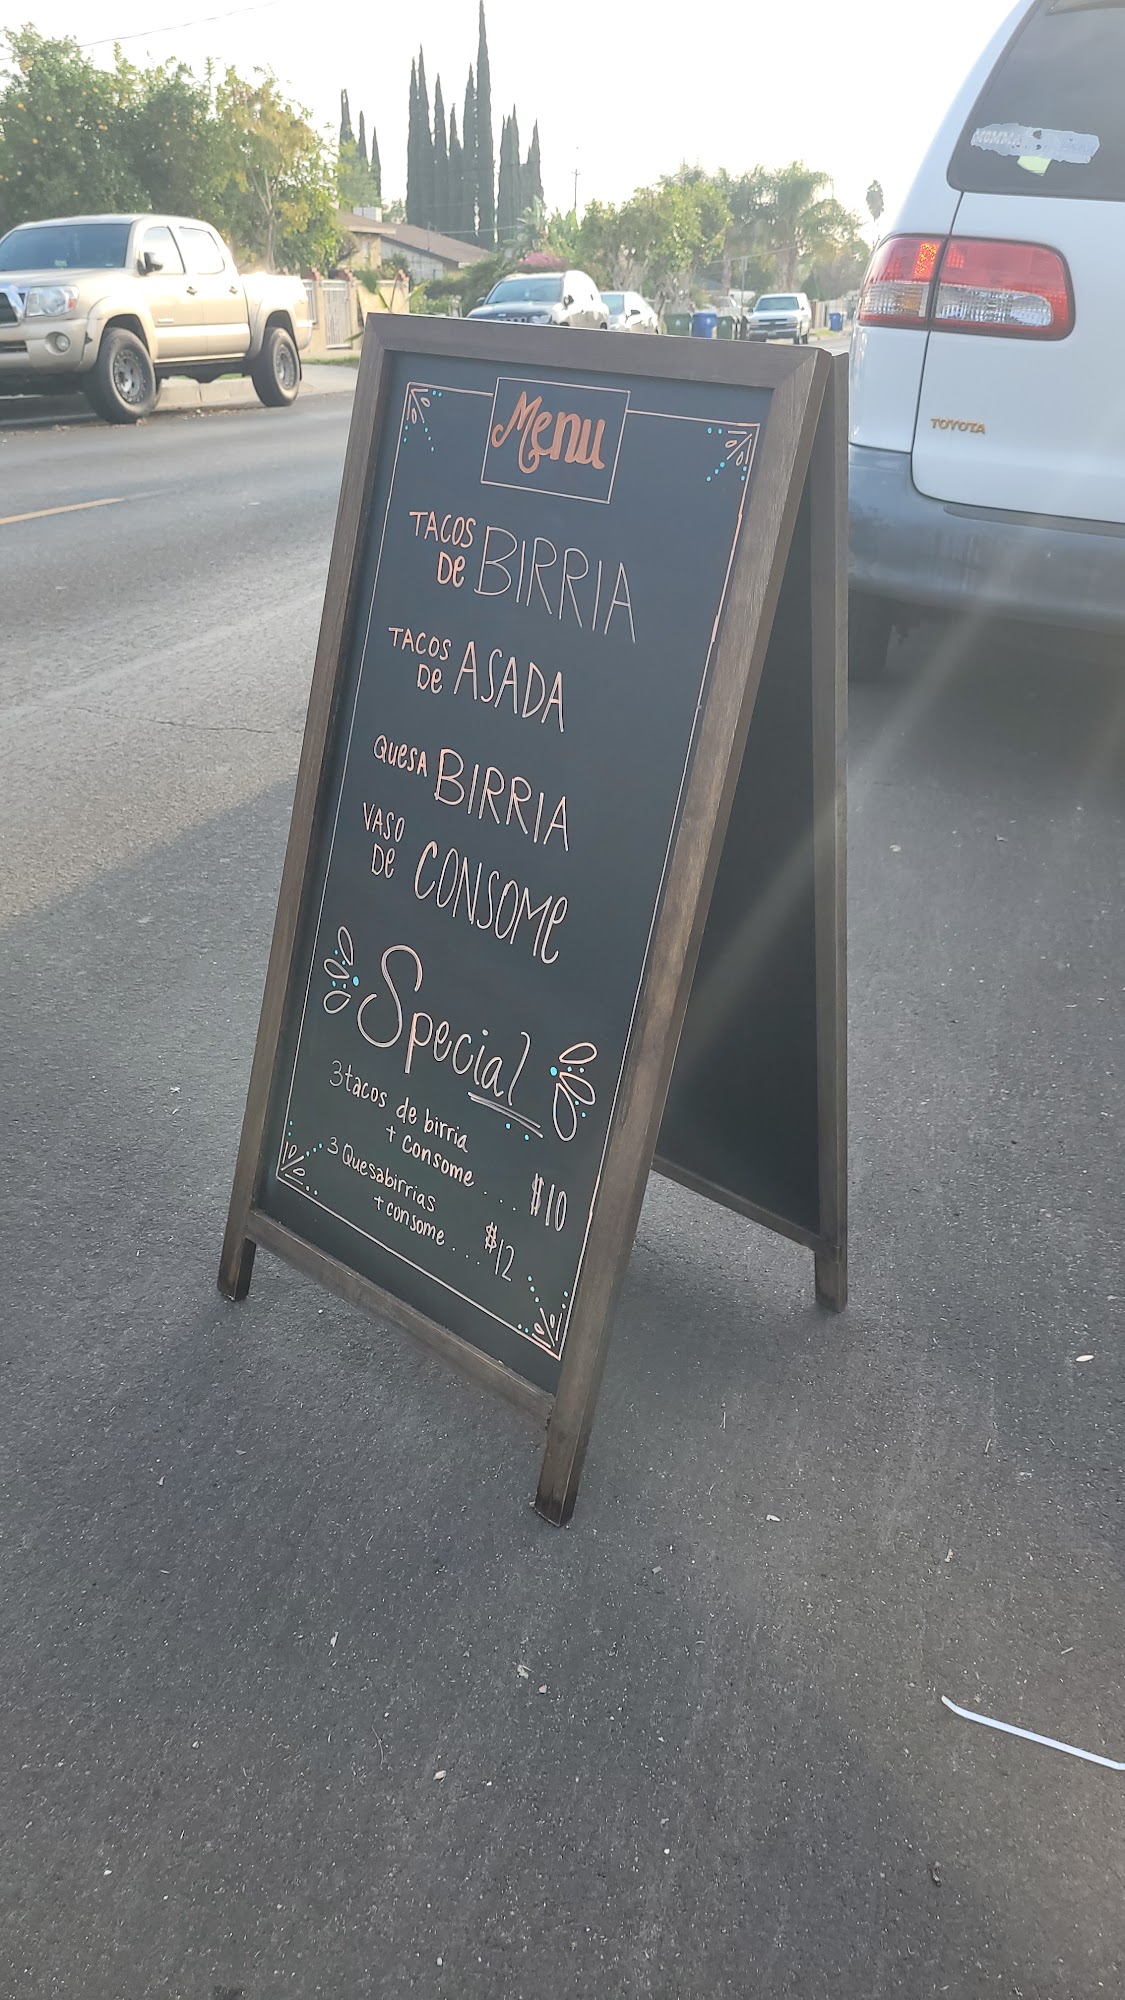 Menu
TACOS
De BIRRIA
TACOS
De ASADA
QUesA BIRRIA
VASO
De CONSOMe
Special
3 tacos de birria
+ consome . . . $10
3 Quesabirrias
+ consome . . . . $12
TOYOTA